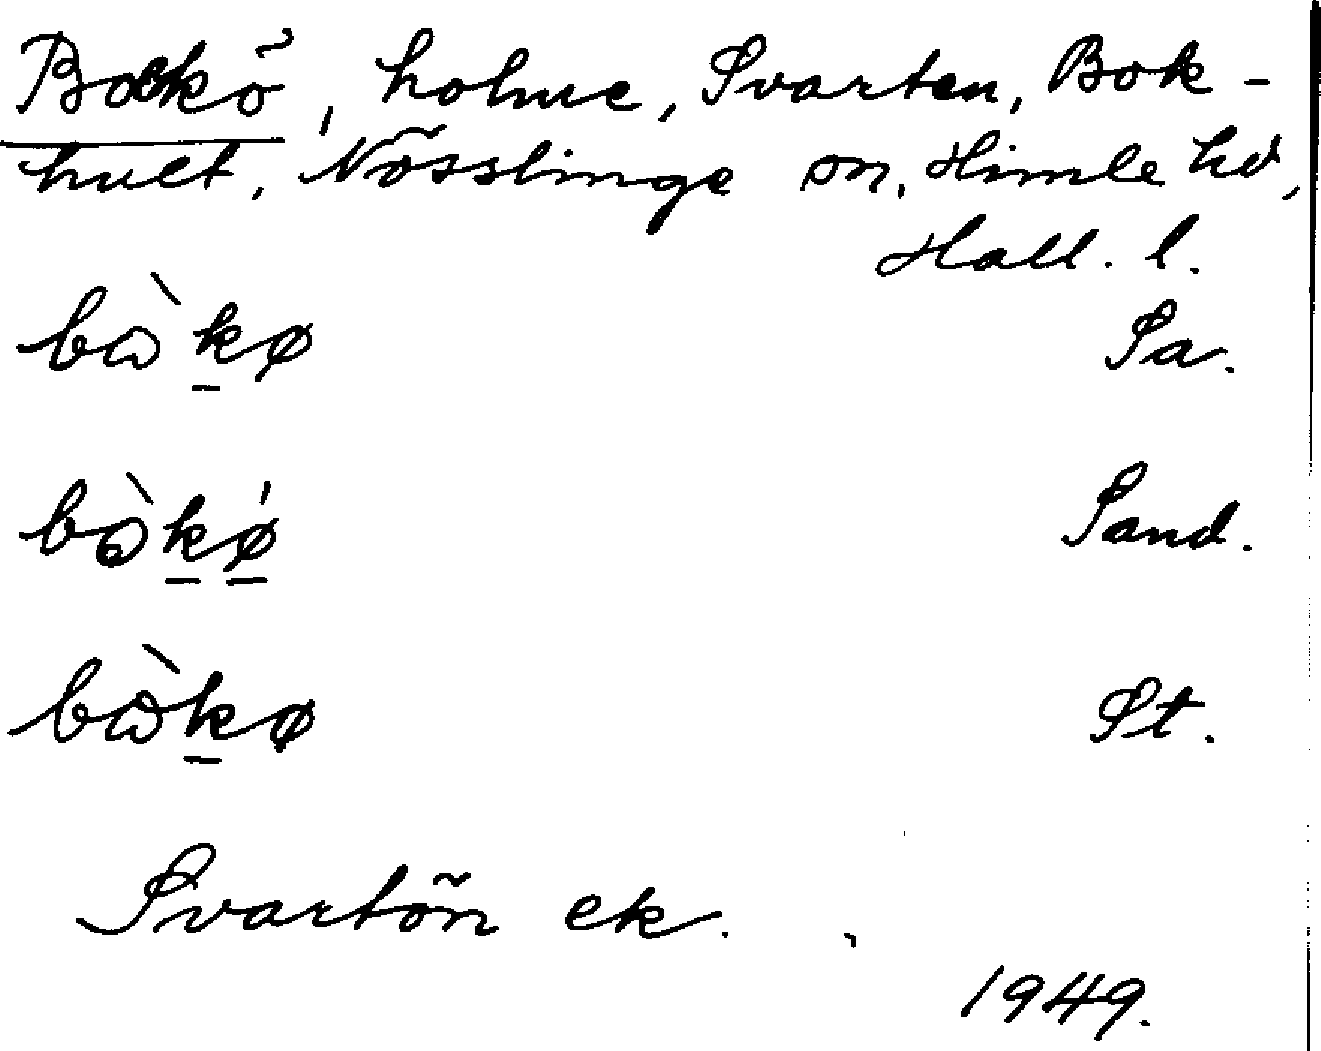 Bockö, holme, Svarten, Bok-
hult, Nösslinge sn, Himle hd,
Hall. l.
bὼkø Sa.
bòkǿ Sand.
bὼkø St.
Svartön ek.
1949.